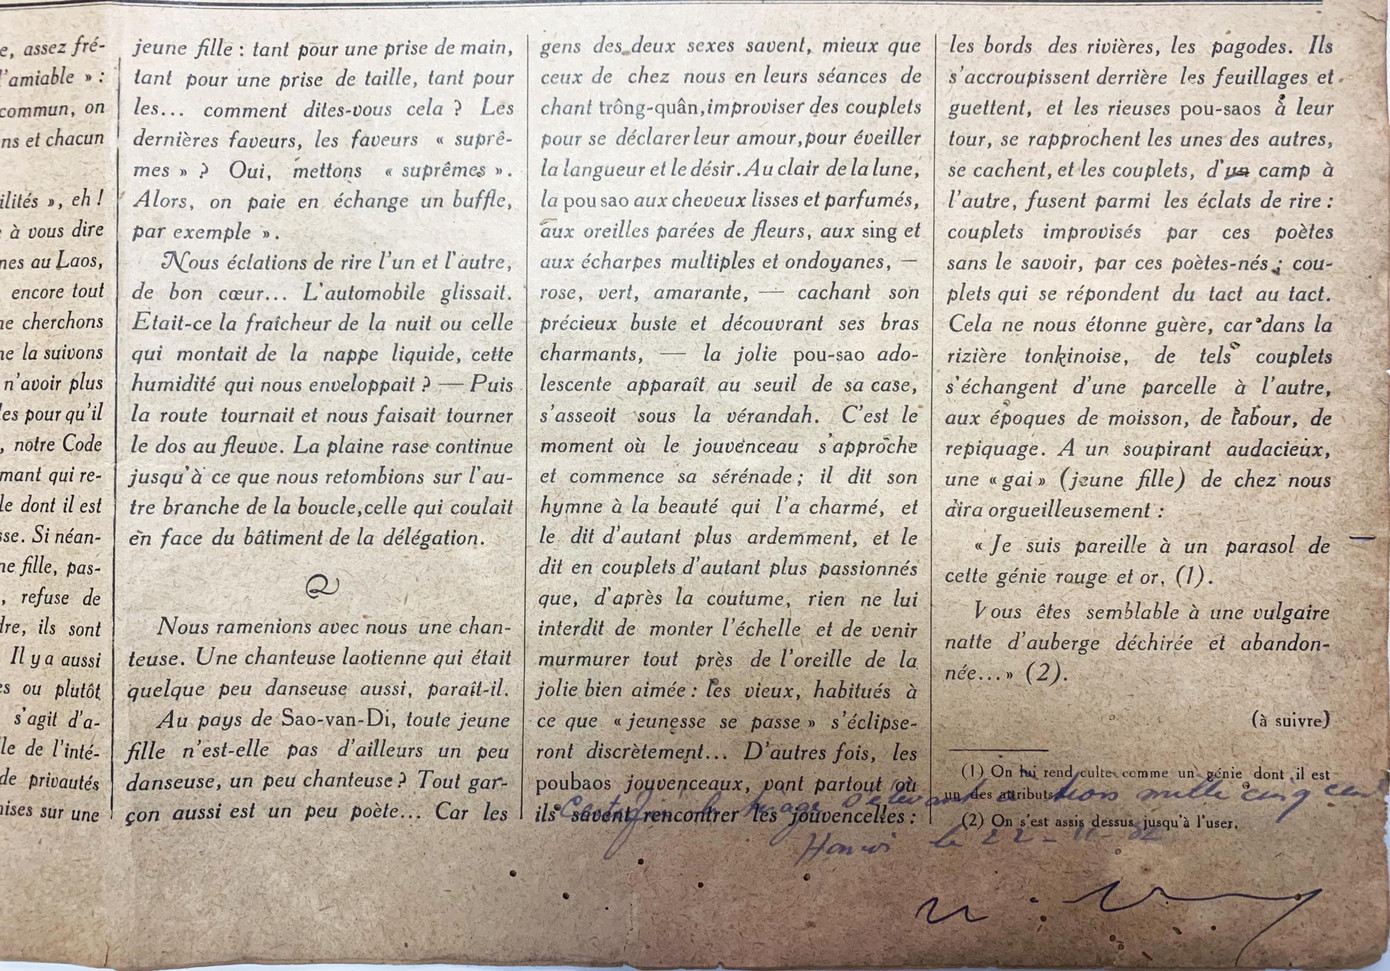 e, assez fré-
l'amiable » :
commun, on
ns et chacun
ilités », eh !
à vous dire
nes au Laos,
encore tout
ne cherchons
ne la suivons
n'avoir plus
les pour qu'il
, notre Code
mant qui re-
le dont il est
sse. Si néan-
ne fille, pas-
, refuse de
dre, ils sont
Il y a aussi
es ou plutôt
s'agit d'a-
lle de l'inté-
de privautés
nises sur une
jeune fille : tant pour une prise de main,
tant pour une prise de taille, tant pour
les... comment dites-vous cela ? Les
dernières faveurs, les faveurs « suprê-
mes » ? Oui, mettons « suprêmes ».
Alors, on paie en échange un buffle,
par exemple ».
Nous éclations de rire l'un et l'autre,
de bon cœur... L'automobile glissait.
Etait-ce la fraîcheur de la nuit ou celle
qui montait de la nappe liquide, cette
humidité qui nous enveloppait ? — Puis
la route tournait et nous faisait tourner
le dos au fleuve. La plaine rase continue
jusqu'à ce que nous retombions sur l'au-
tre branche de la boucle,celle qui coulait
en face du bâtiment de la délégation.
Nous ramenions avec nous une chan-
teuse. Une chanteuse laotienne qui était
quelque peu danseuse aussi, paraît-il.
Au pays de Sao-van-Di, toute jeune
fille n'est-elle pas d'ailleurs un peu
danseuse, un peu chanteuse ? Tout gar-
çon aussi est un peu poète... Car les
gens des deux sexes savent, mieux que
ceux de chez nous en leurs séances de
chant trông-quân,improviser des couplets
pour se déclarer leur amour,pour éveiller
la langueur et le désir.Au clair de la lune,
la pou sao aux cheveux lisses et parfumés,
aux oreilles parées de fleurs, aux sing et
aux écharpes multiples et ondoyanes, —
rose, vert, amarante, — cachant son
précieux buste et découvrant ses bras
charmants, — la jolie pou-sao ado-
lescente apparaît au seuil de sa case,
s'asseoit sous la vérandah. C'est le
moment où le jouvenceau s'approche
et commence sa sérénade ; il dit son
hymne à la beauté qui l'a charmé, et
le dit d'autant plus ardemment, et le
dit en couplets d'autant plus passionnés
que, d'après la coutume, rien ne lui
interdit de monter l'échelle et de venir
murmurer tout près de l'oreille de la
jolie bien aimée : les vieux, habitués à
ce que « jeunesse se passe » s'éclipse-
ront discrètement... D'autres fois, les
poubaos jouvenceaux, vont partout où
ils savent rencontrer les jouvencelles :
les bords des rivières, les pagodes. Ils
s'accroupissent derrière les feuillages et
guettent, et les rieuses pou-saos à leur
tour, se rapprochent les unes des autres,
se cachent, et les couplets, d'un camp à
l'autre, fusent parmi les éclats de rire :
couplets improvisés par ces poètes
sans le savoir, par ces poètes-nés ; cou-
plets qui se répondent du tact au tact.
Cela ne nous étonne guère, car dans la
rizière tonkinoise, de tels couplets
s'échangent d'une parcelle à l'autre,
aux époques de moisson, de labour, de
repiquage. A un soupirant audacieux,
une « gai » (jeune fille) de chez nous
dira orgueilleusement :
« Je suis pareille à un parasol de
cette génie rouge et or, (1).
Vous êtes semblable à une vulgaire
natte d'auberge déchirée et abandon-
née...» (2).
(à suivre)
(1) On lui rend culte comme un génie dont il est
un des attributs.
(2) On s'est assis dessus jusqu'à l'user.
mille cinq cent
Hanoi le 22-11-